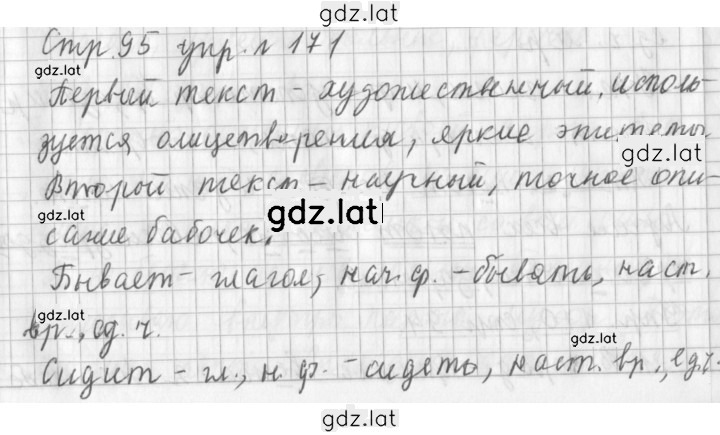 gdz.lat
Стр. 95 упр. № 171
gdz.lat
Первый текст - художественный, исполь-
зуется олицетворения, яркие эпитеты.
gdz.lat
Второй текст - научный, точное опи-
gdz.lat
gdz.lat
сание бабочек.
Бывает - глагол, нач. ф. - бывать, наст.
gdz.lat
вр., ед. ч.
gdz.lat
Сидит - гл., н. ф. - сидеть, наст. вр., ед.ч.
gdz.lat